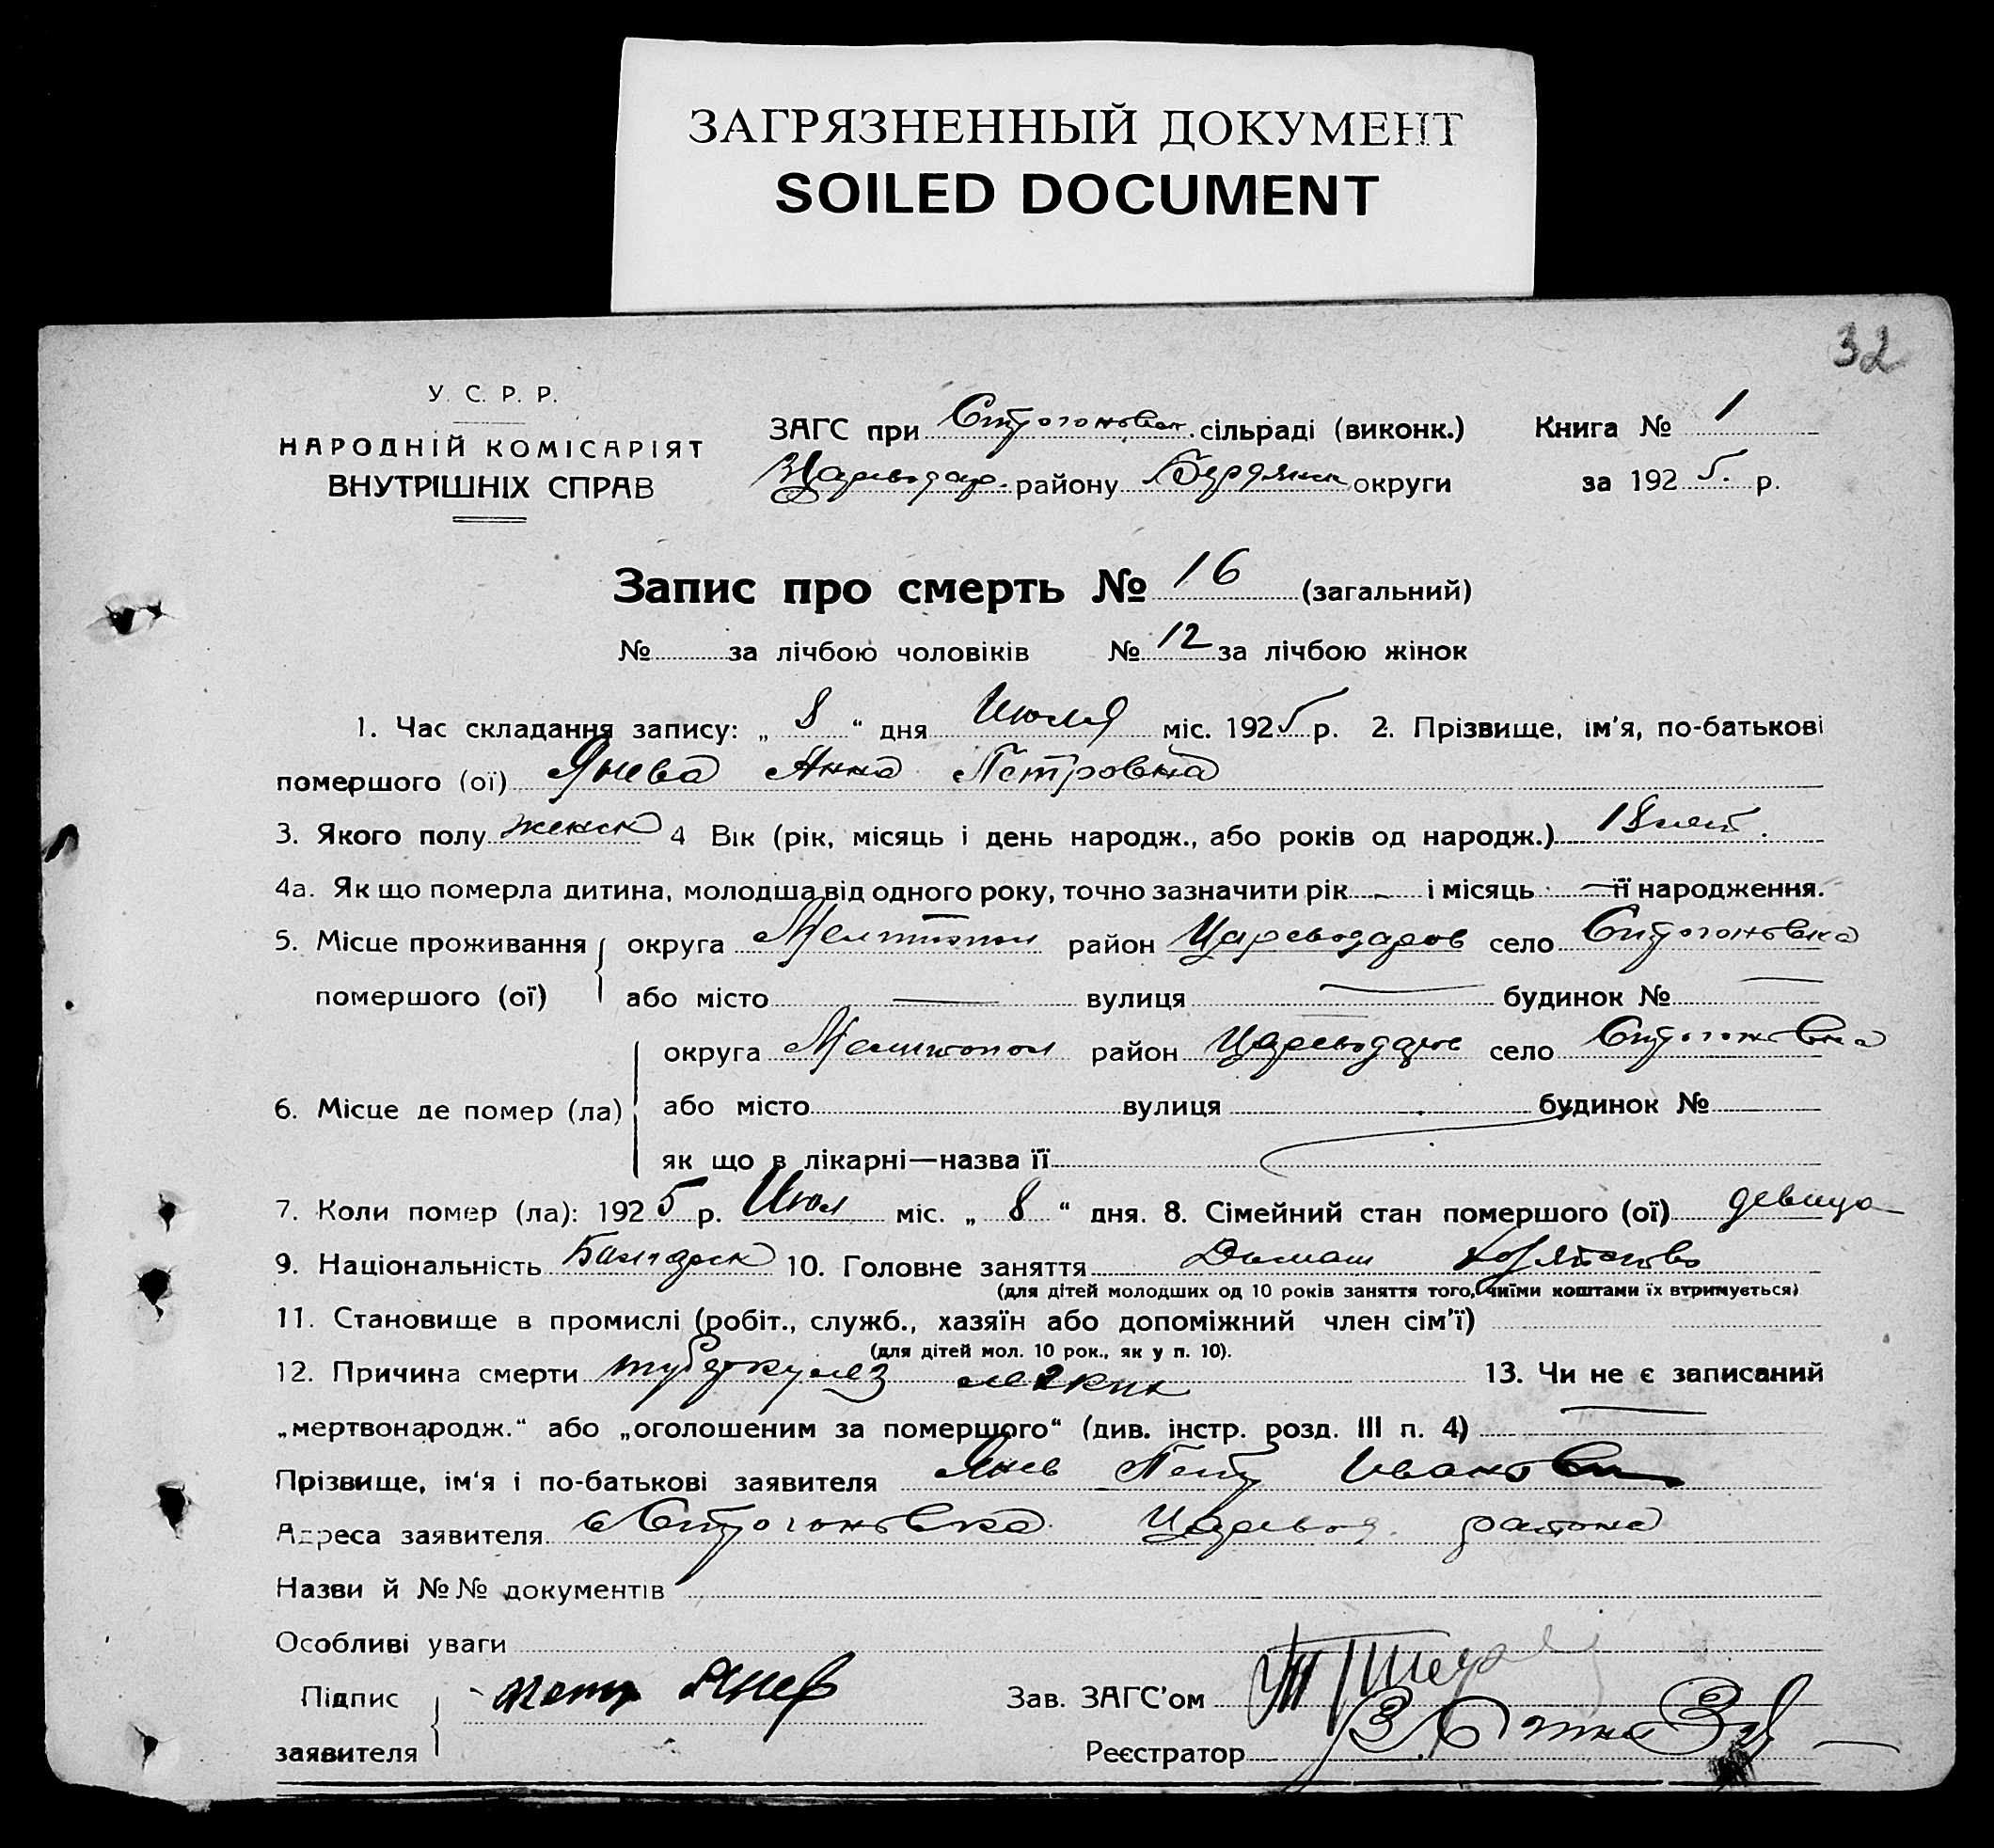 ЗАГРЯЗНЕННЫЙ ДОКУМЕНТ
SOILED DOCUMENT
32
У. С. Р. Р.
НАРОДНІЙ КОМІСАРІЯТ
ВНУТРІШНІХ СПРАВ
ЗАГС при Строгоновск. сільраді (виконк.) Книга № 1
Цареводар. району Бердянск округи за 1925. р.
Запис про смерть № 16 (загальний)
№ за лічбою чоловіків № 12 за лічбою жінок
1. Час складання запису: „ 8 “ дня Июля міс. 1925 р. 2. Прізвище, ім'я, по-батькові
помершого (ої) Янева Анна Петровна
3. Якого полу женск 4 Вік (рік, місяць і день народж., або років од народж.) 18 лет.
4а. Як що померла дитина, молодша від одного року, точно зазначити рік - і місяць — її народження.
5. Місце проживання округа Мелитопол район Цареводаров село Строгоновка
помершого (ої) або місто — вулиця — будинок № —
округа Мелитопол район Цареводаров село Строгоновка
6. Місце де помер (ла) або місто вулиця будинок №
як що в лікарні—назва її
7. Коли помер (ла): 1925 р. Июл міс. „ 8 “ дня. 8. Сімейний стан помершого (ої) девица
9. Національність Болгарск 10. Головне заняття Домаш
(для дітей молодших од 10 років заняття того, чиїми коштами їх втримується)
11. Становище в промислі (робіт., служб., хазяїн або допоміжний член сім'ї)
(для дітей мол. 10 рок., як у п. 10).
12. Причина смерти туберкулез легких 13. Чи не є записаний
„мертвонародж.“ або „оголошеним за помершого“ (див. інстр. розд. III п. 4) —
Прізвище, ім'я і по-батькові заявителя Янев Петр Иванович
Адреса заявителя с Строгоновка Царевод. района
Назви й №№ документів
Особливі уваги
Підпис Петр Янев Зав. ЗАГС'ом
заявителя Реєстратор